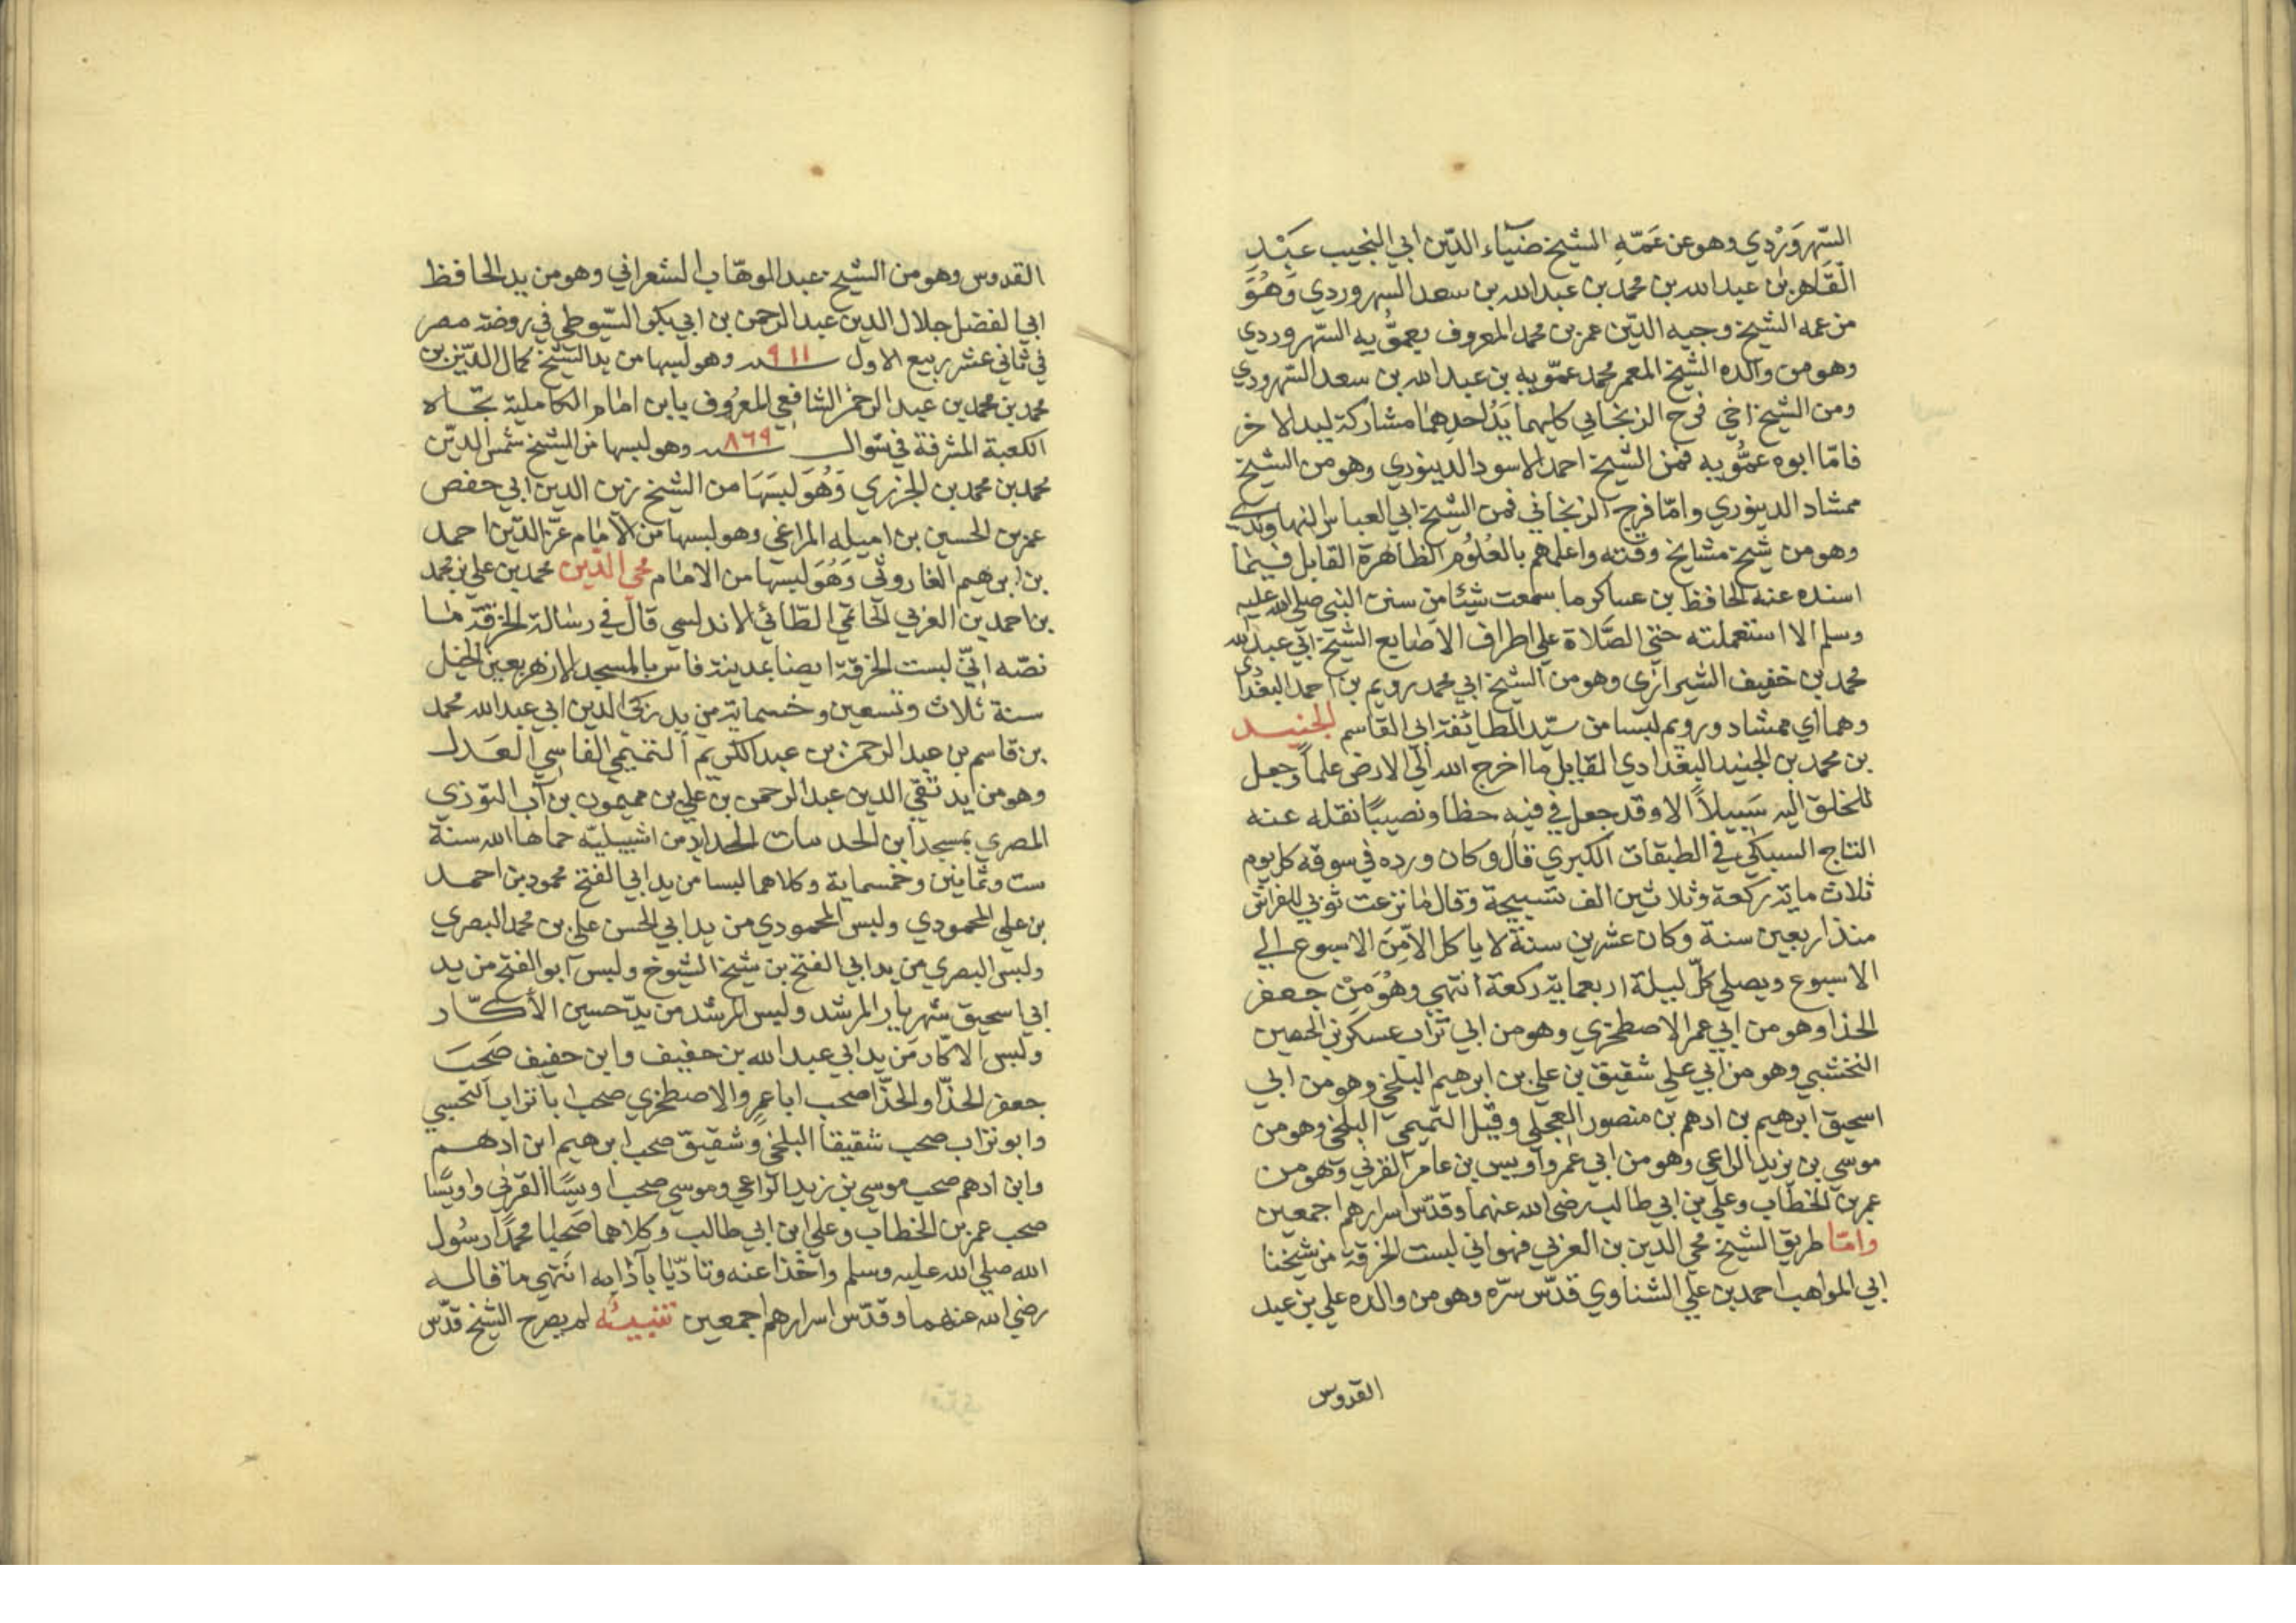 السّهروَرْدي وهو عن عَمّهِ الشيخ ضيآء الدّين ابي النجيب عَبْدِ
القَاهر بن عبد الله بن محمد بن عبد الله بن سعد السهروردي وَهُوَ
من عمه الشيخ وجيه الدّين عمر بن محمد المعروف بعمّويه السّهروردي
وهو من والده الشيخ المعمر محمد عمّويه بن عبد الله بن سعد السّهروردي
ومن الشيخ اخي فرج الزنجاني كليهما يَدُ احدِهما مشاركة ليد الاخر
فامّا ابوه عمُّويه فمن الشيخ احمد الاسود الدينوري وهو من الشيخ
ممشاد الدينوري وامّا فرج الزنجاني فمن الشيخ ابي العباس النهاوندي
وهو من شيخ مشايخ وقته واعلمهم بالعُلُوم الظاهرة القايل فيما
اسنده عنه الحافظ بن عساكر ما سمعت شيئا من سنن النبي صلى الله عليه
وسلم الا استعملته حتي الصَّلاة علي اطراف الاصابع الشيخ ابي عبد الله
محمد بن خفيف الشيرازي وهو من الشيخ ابي محمد رويم بن احمد البغدادي
وهما اي ممشاد ورويم لبسا من سيّد الطائفة ابي القاسم الجنيد
بن محمد بن الجنيد البغدادي القايل ما اخرج الله الي الارض علماً وجعل
للخلق اليه سَبيلاً الا وقد جعل لي فيه حظا ونصيبًا نقله عنه
التاج السبكي في الطبقات الكبري قال وكان ورده في سوقه كل يوم
ثلاث ماية ركعة وثلاثين الف تسبيحة وقال ما نزعت ثوبي للفراش
منذ اربعين سنة وكان عشرين سنة لا ياكل الاّ مِنَ الاسبوع الي
الاسبوع ويصلي كلّ ليلة اربعماية ركعة انتهي وهُوَ مِنْ جعفر
الحذا وهو من ابي عمر الاصطخري وهو من ابي تراب عسكر بن الحصين
النخشبي وهو من ابي علي شقيق بن علي بن ابرهيم البلخي وهو من ابي
اسحيق ابرهيم بن ادهم بن منصور العجلي وقيل التميمي البلخي وهو من
موسي بن يزيد الراعي وهو من ابي عمرو أويس بن عامر القرني وهو من
عمر بن الخطاب وعلي بن ابي طالب رضي الله عنهما وقدّس اسرارهم اجمعين
وامّا طريق الشيخ محي الدين بن العربي فهو اني لبست الخرقة من شيخنا
ابي المواهب احمد بن علي الشناوي قدّس سرّه وهو من والده علي بن عبد
القدوس
القدوس وهو من الشيخ عبد الموهّاب الشعراني وهو من يد الحافظ
ابي الفضل جلال الدين عبد الرحمن بن ابي بكر السّيوطي في روضة مصر
في ثاني عشر ربيع الاول سنة ٩١١ وهو لبسها من يد الشيخ كمال الدّين بن
محمد بن محمد بن عبد الرحمن الشافعي المعرُوف بابن امام الكاملية تجاه
الكعبة المشرفة في شوال سنة ٨٦٩ وهو لبسها من الشيخ شمس الدّين
محمد بن محمد بن الجزري وَهُوَ لبسَهَا من الشيخ زين الدين ابي حفص
عمر بن الحسين بن اميله المراغي وهو لبسها من الامام عزّ الدّين احمد
بن ابرهيم الفاروثي وَهُوَ لبسها من الامام محي الدّين محمد بن علي بن محمد
بن احمد بن العربي الحاتمي الطّائي الاندلسي قال في رسالة الخرقة ما
نصّه انيّ لبست الخرقة ايضا بمدينة فاس بالمسجد الازهر بعين الخيل
سنة ثلاث وتسعين وخسماية من يد زكي الدين ابي عبد الله محمد
بن قاسم بن عبد الرحمن بن عبد الكريم التميمي الفاسي العَدل
وهو من يد تقي الدين عبد الرحمن بن علي بن ميمون بن آب التوزي
المصري بمسجد ابن من اشبيليّة حماها الله سنة
ست وثمانين وخمسماية وكلاهما لبسا من يد ابي الفتح محمود بن احمد
بن علي المحمودي ولبس المحمودي من يد ابي الحسن علي بن محمد البصري
ولبس البصري من يد ابي الفتح بن شيخ الشيوخ ولبس ابو الفتح من يد
ابي اسحيق شهريار المرشد ولبس المرشد من يد حسين الأكّار
ولبس الاكّار من يد ابي عبد الله بن خفيف وابن خفيف صَحِبَ
جعفر الحذّا والحذّا صحب ابا عمرو الاصطخري صحب ابا تراب النخسبي
وابو تراب صحب شقيقا البلخي وشقيق صحب ابرهيم ابن ادهم
وابن ادهم صحب موسي بن زيد الرّاعي وموسي صحب اويسًا القرني واويسًا
صحب عمر بن الخطاب وعلي ابن ابي طالب وكلاهما صَحِبا محمدًا رسُول
الله صلي الله عليه وسلم واخذا عنه وتادّبا بآدابه انتهي ما قاله
رضي الله عنهما وقدّس اسرارهم اجمعين تنبيه لم يصرح الشيخ قدّس